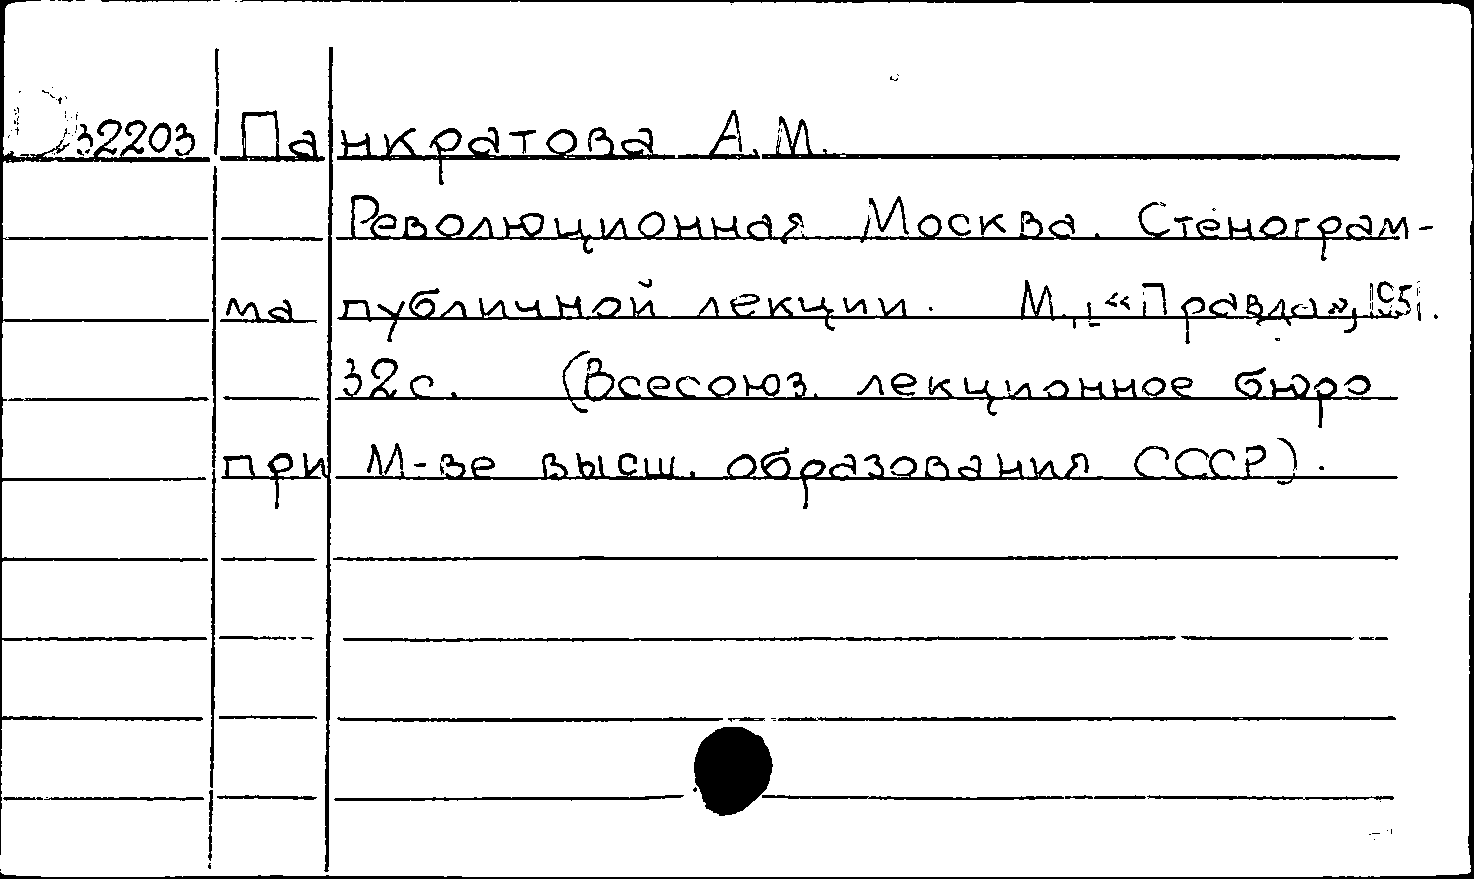 D 32203 Панкратова А.М.
Революционная Москва. Стенограм-
ма публичной лекции. М., «Правда», 1951.
32 с. (Всесоюз. лекционное бюро
при М-ве высш. образования СССР).